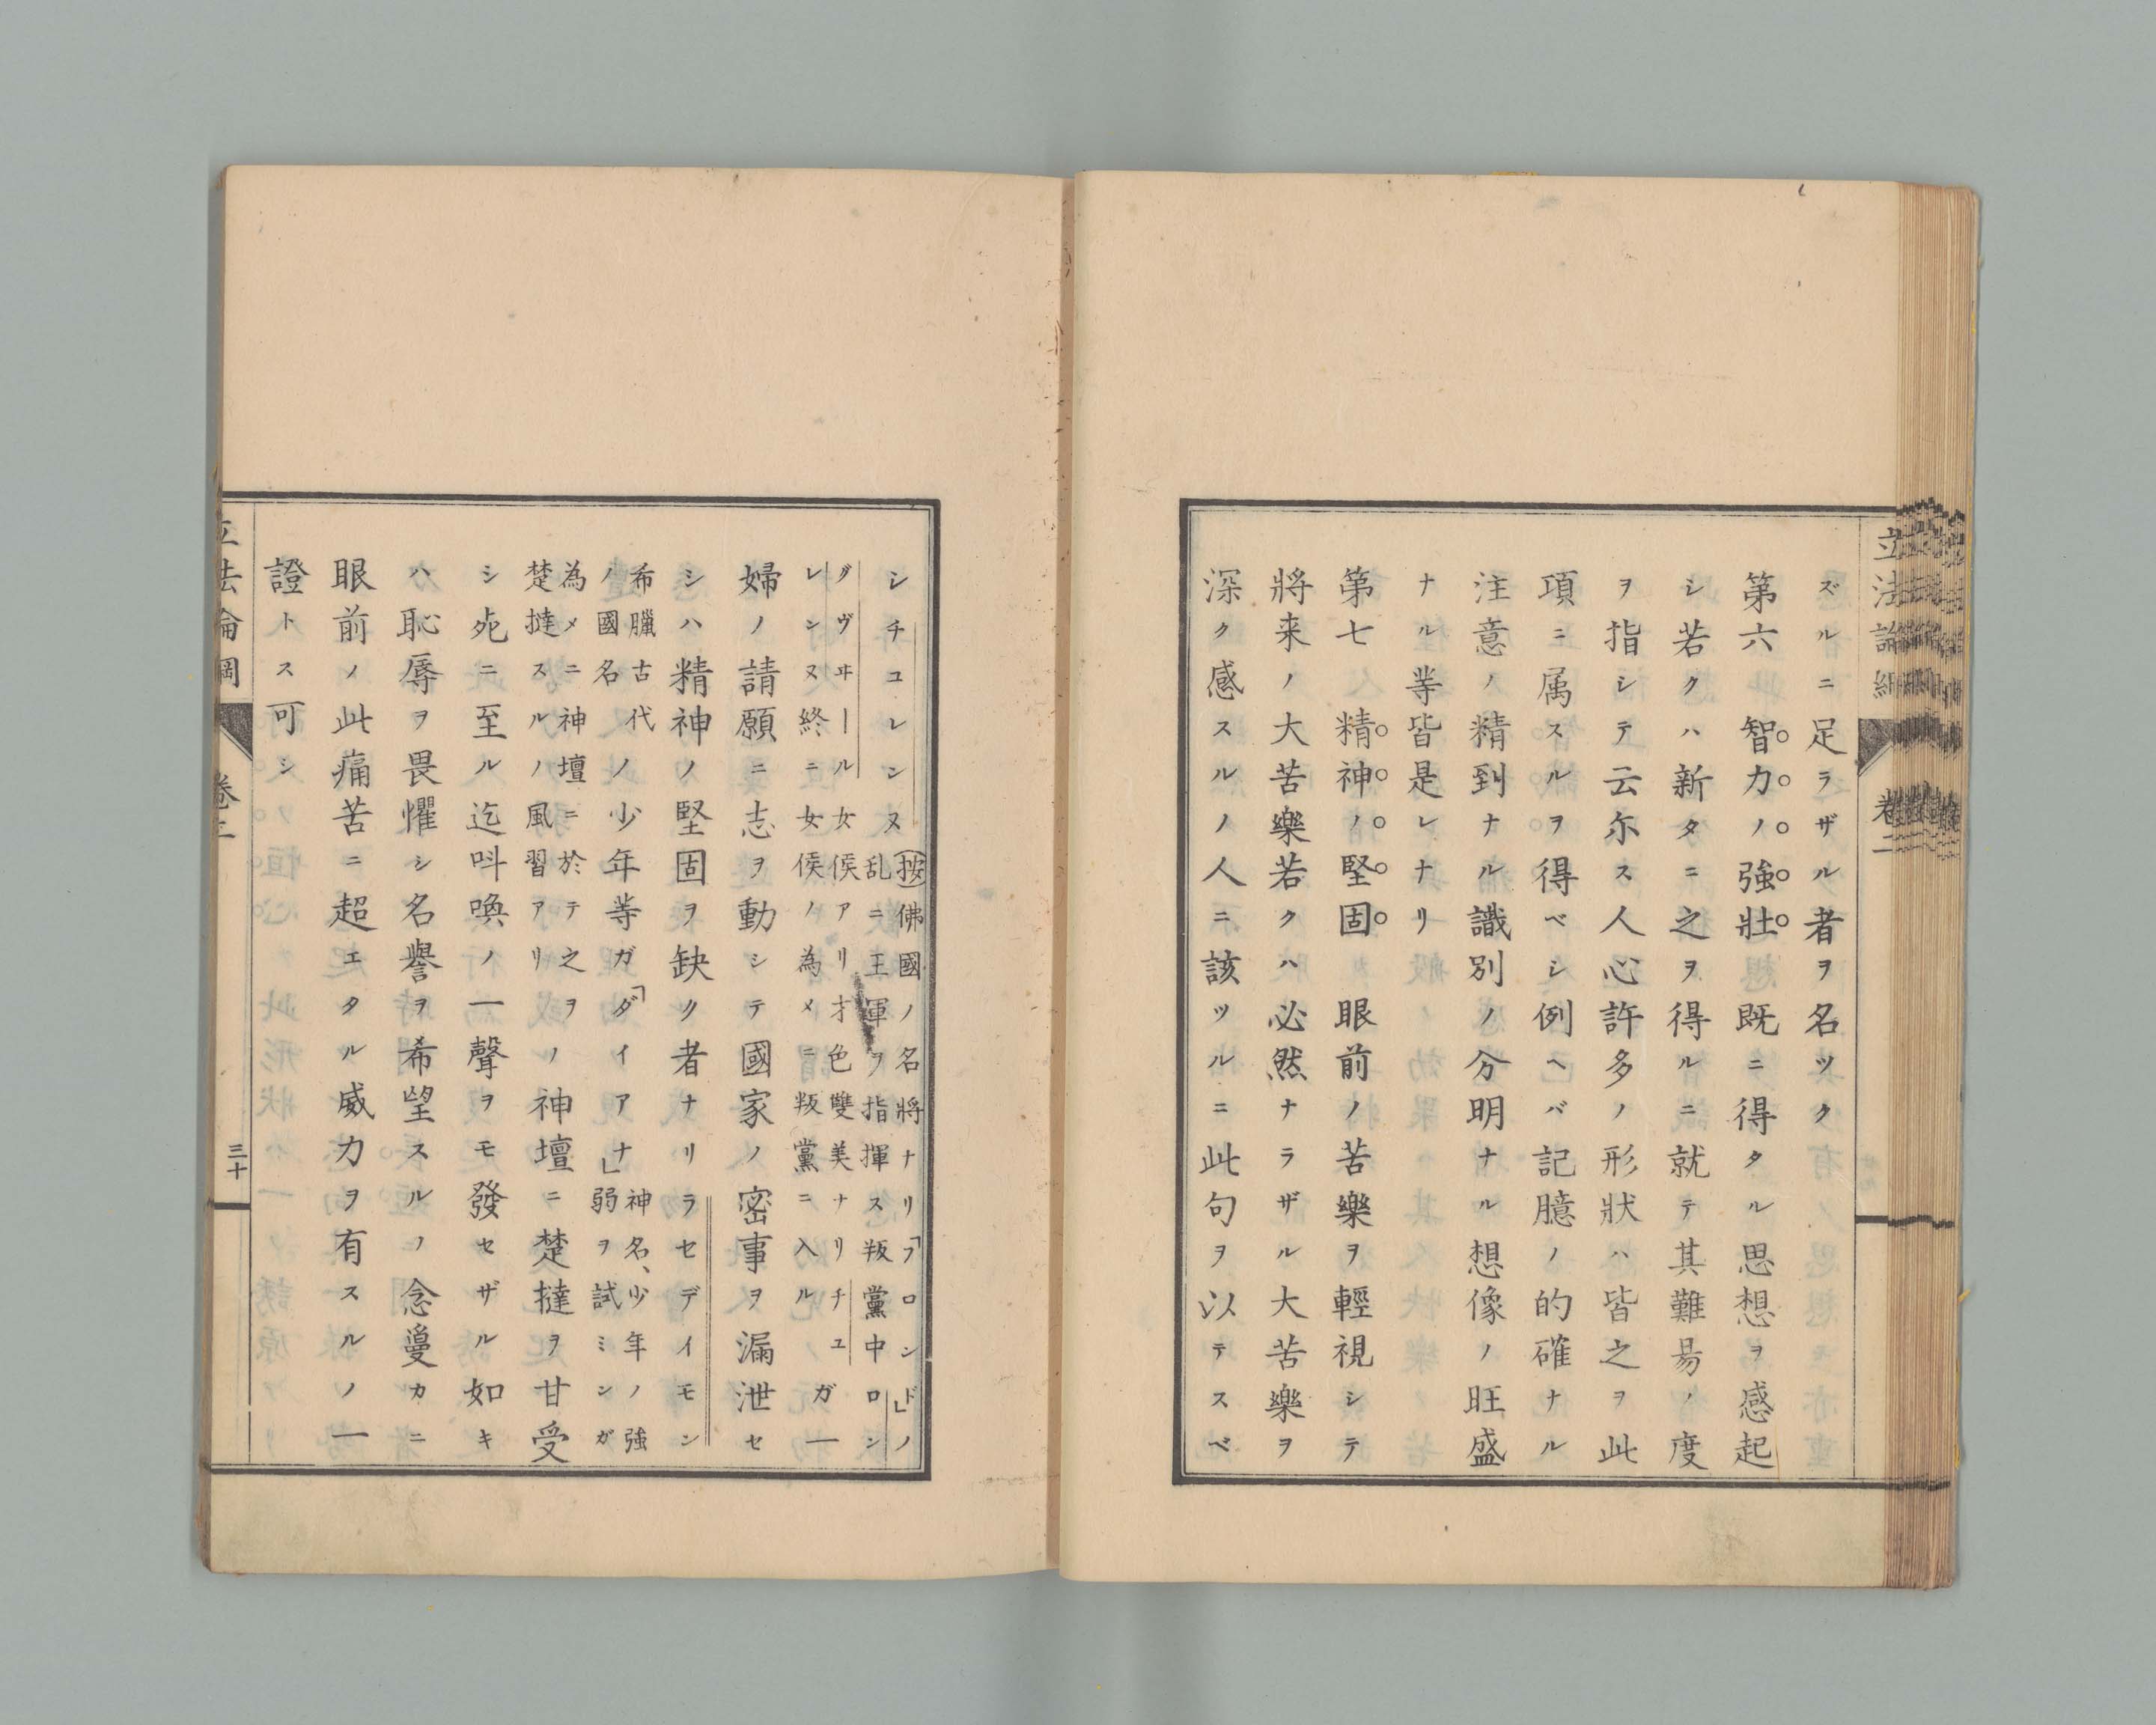 立法論綱
卷二
ズルニ足ラザル者ヲ名ツク
第六 智力ノ強壯 既ニ得タル思想ヲ感起
シ若クハ新タニ之ヲ得ルニ就テ其難昜ノ度
ヲ指シテ云尓ス人心許多ノ形狀ハ皆之ヲ此
項ニ属スルヲ得ベシ例ヘバ記臆ノ的確ナル
注意ノ精到ナル識別ノ分明ナル想像ノ旺盛
ナル䒭皆是レナリ
第七 精神ノ堅固 眼前ノ苦樂ヲ輕視シテ
將来ノ大苦樂若クハ必然ナラザル大苦樂ヲ
深ク感スルノ人ニ該ツルニ此句ヲ以テスベ
シチユレンヌ
按佛國ノ名將ナリ「フロンド」ノ
乱ニ王軍ヲ指揮ス叛黨中ロン
グヴヰール女侯アリ才色雙美ナリチユ
レンヌ終ニ女侯ノ為メニ叛黨ニ入ル
ガ一
婦ノ請願ニ志ヲ動シテ國家ノ密事ヲ漏泄セ
シハ精神ノ堅固ヲ缺ク者ナリラセデイモン
希臘古代
ノ國名
ノ少年䒭ガ「ダイアナ」
神名、少年ノ強
弱ヲ試ミンガ
為メニ神壇ニ於テ之ヲ
楚撻スルノ風習アリ
ノ神壇ニ楚撻ヲ甘受
シ死ニ至ル迄呌喚ノ一聲ヲモ發セザル如キ
ハ恥辱ヲ畏懼シ名譽ヲ希望スルノ念遙カニ
眼前ノ此痛苦ニ超エタル威力ヲ有スルノ一
證トス可シ
立法論綱
卷二
三十